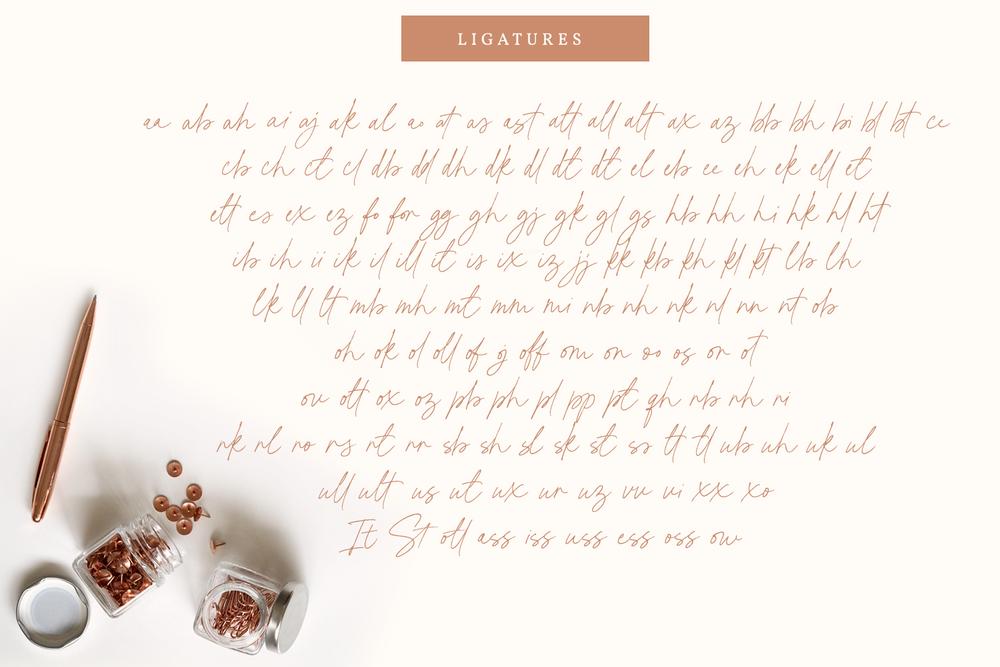 LIGATURES
aa ab ah ai aj ak al ao at as ast att all alt ax az bb bh bi bl bt cc
cb ch ct cl db dd dh dk dl dt dt el eb ee eh ek ell et
ett es ex ez fo for gg gh gj gk gl gs hb hh hi hk hl ht
ib ih ii ik il ill it is ix iz jj kk kb kh kl kt lb lh
lk ll lt mb mh mt mm mi nb nh nk nl nn nt ob
oh ok ol oll of oj off om on oo os or ot
ov ott ox oz pb ph pl pp pt qh rb rh ri
rk rl ro rs rt rr sb sh sl sk st ss tt tl ub uh uk ul
ull ult us ut ux ur uz vv vi xx xo
It St oll ass iss uss ess oss ow